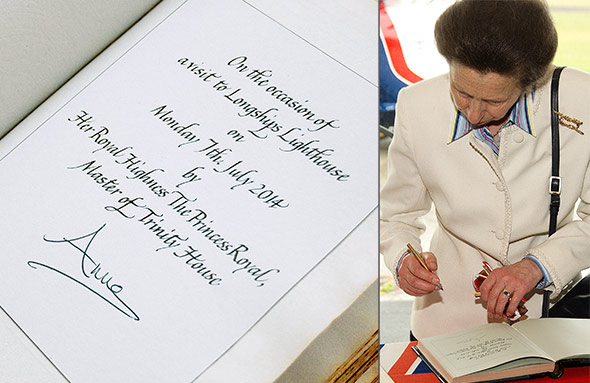 On the occasion of
a visit to Longships Lighthouse
on
Monday 7th. July 2014
by
Her Royal Highness The Princess Royal,
Master of Trinity House
Anne